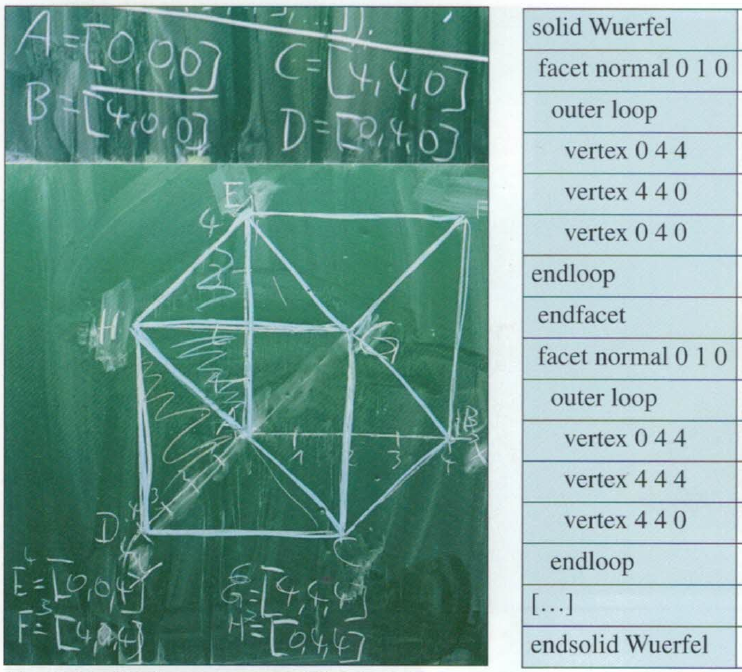 A=[0,0,0] C=[4,4,0]
B=[4,0,0] D=[0,4,0]
E
4
F
H
A
1 2 3 4
B
x
3
4
D
C
E=[0,0,4] G=[4,4,4]
F=[4,0,4] H=[0,4,4]
solid Wuerfel
facet normal 0 1 0
outer loop
vertex 0 4 4
vertex 4 4 0
vertex 0 4 0
endloop
endfacet
facet normal 0 1 0
outer loop
vertex 0 4 4
vertex 4 4 4
vertex 4 4 0
endloop
[…]
endsolid Wuerfel